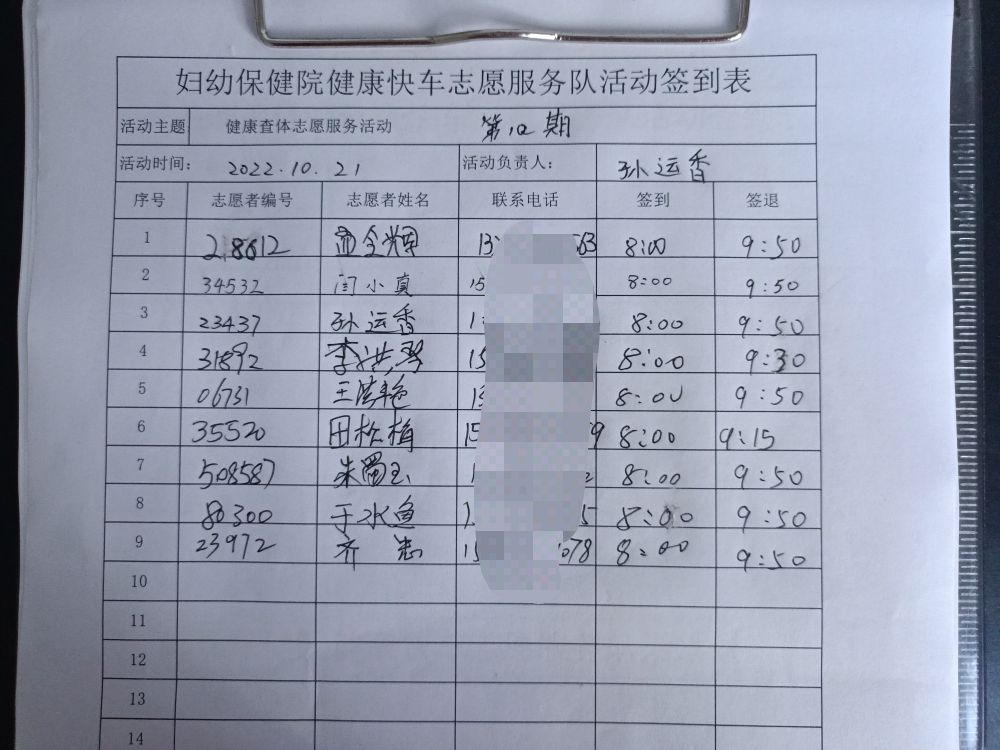 妇幼保健院健康快车志愿服务队活动签到表
活动主题 健康查体志愿服务活动 第12期
活动时间: 2022.10.21 活动负责人: 孙运香
序号 志愿者编号 志愿者姓名 联系电话 签到 签退
1 28612 全辉 13 63 8:00 9:50
2 34532 闫小真 15 8:00 9:50
3 23437 孙运香 1 8:00 9:50
4 31892 李洪琴 15 8:00 9:30
5 06731 王洪艳 13 8:00 9:50
6 35520 田松梅 15 9 8:00 9:15
7 508587 朱蜀玉 8:00 9:50
8 80300 于水鱼 1 5 8:00 9:50
9 23972 齐志 15 078 8:00 9:50
10
11
12
13
14